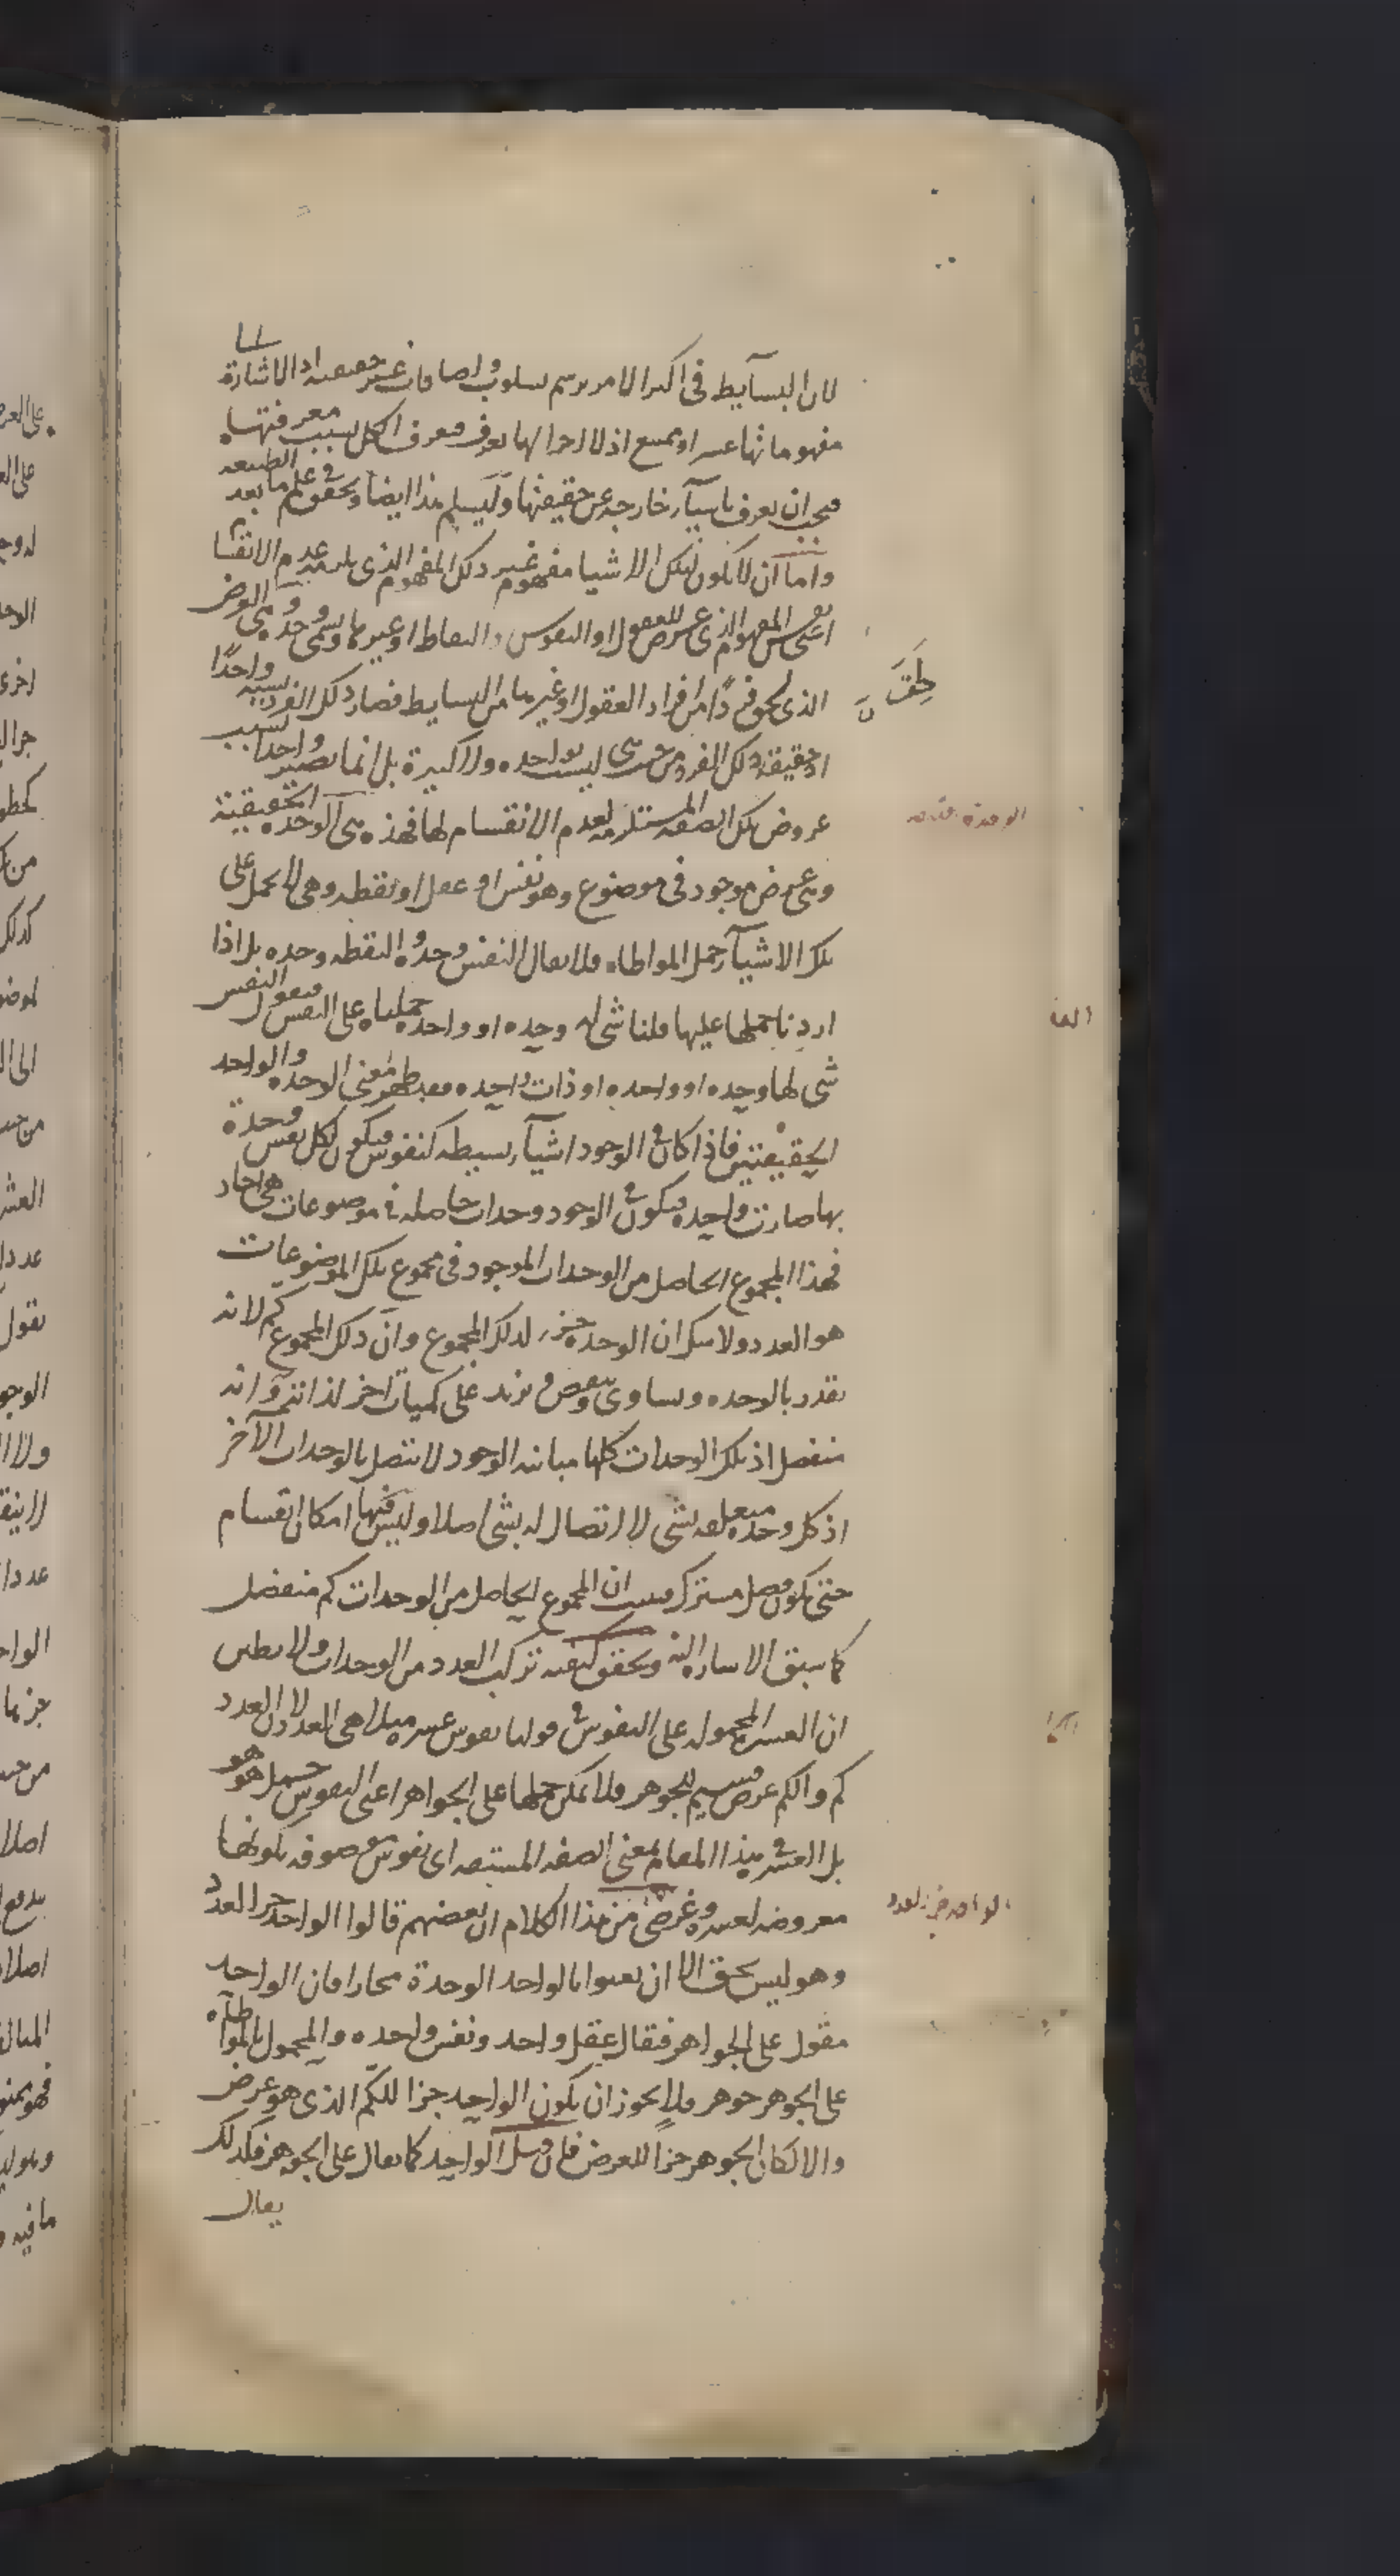 لان البسآيط فى اكثر الامر يرسم بسلوب واضافات غير حقيقية اذ الاشارة الى
مفهوماتها عسر او ممتنع اذ لا اجزا لها تعرف فيعرف الكل بسبب معرفتها
فيجب ان يعرف باشيآء خارجه عن حقيقتها وليسلم هذا ايضا ويحقق فى علم ما بعد الطبيعه
واما ان لا يكون لتلك الاشيا مفهوم غير ذلك المفهوم الذى يلزمه عدم الانقسام
اعنى نفس المفهوم الذى عرض للعقول او النفوس والنقاط او غيرها ويسمى وحده وهى العرض
الذى لحق فردًا من افراد العقول او غيرها من البسايط فصار ذلك الفرد بسببه واحدًا
اذ حقيقة ذلك الفرد من حيث هى ليست بواحده ولا كثيرة بل انما يصير واحدا بسبب
عروض تلك الصفه المستلزمه لعدم الانقسام لها فهذه هى الوحده الحقيقية
وهى عرض موجود فى موضوع وهو نفس او عقل او نقطه وهى لا تحمل على
تلك الاشيآء حمل المواطاه فلا يقال النفس وحدة والنقطه وحده بل اذا
اردنا حملها عليها قلنا شى له وحده او واحده حملناه على النفس فنقول النفس
شى لها وحده او واحده او ذات واحده فقد ظهر معنى الوحده والواحد
الحقيقتين فاذا كان فى الوجود اشيآء بسيطه كنفوس فيكون لكل نفس وحدة
بها صارت واحده فيكون فى الوجود وحدات حاصله فى موضوعات هى احاد
فهذا المجموع الحاصل من الوحدات الموجود فى مجموع تلك الموضوعات
هو العدد ولا شك ان الوحده جزء لذلك المجموع وان ذلك المجموع كم لانه
يقدر بالوحده ويساوى وينقص ويزيد على كميات اخر لذاته وانه
منفصل اذ تلك الوحدات كلها مباينه الوجود لا تتصل بالوحدات الآخر
اذ كل وحده متعلقه بشى لا اتصال له بشى اصلا وليس فيها امكان انقسام
حتى يكون فصل مشترك فثبت ان المجموع الحاصل من الوحدات كم منفصل
كما سبق الاشاره اليه ويحقق كيفيه تركيب العدد من الوحدات ولا يظنن
ان العشره المحموله على النفوس فى قولنا نفوس عشره مثلا هى العدد لان العدد
كم والكم عرض قسيم للجوهر فلا يمكن حملها على الجواهر اعنى النفوس حمل هو هو
بل العشره فى هذا المقام بمعنى الصفه المشتقه اى نفوس موصوفه بكونها
معروضه لعشره وغرضى من هذا الكلام ان بعضهم قالوا الواحد جزء العدد
وهو ليس بحق الا ان يعنوا بالواحد الوحدة مجازا فان الواحد
مقول على الجواهر فيقال عقل واحد ونفس واحده والمحمول بالمواطآه
على الجوهر جوهر فلا يجوز ان يكون الواحد جزا للكم الذى هو عرض
والا لكان الجوهر جزا للعرض فان قيل الواحد كما يقال على الجوهر فكذلك
يقال
الوحدة الحقيقيه
الواحد جزء العدد